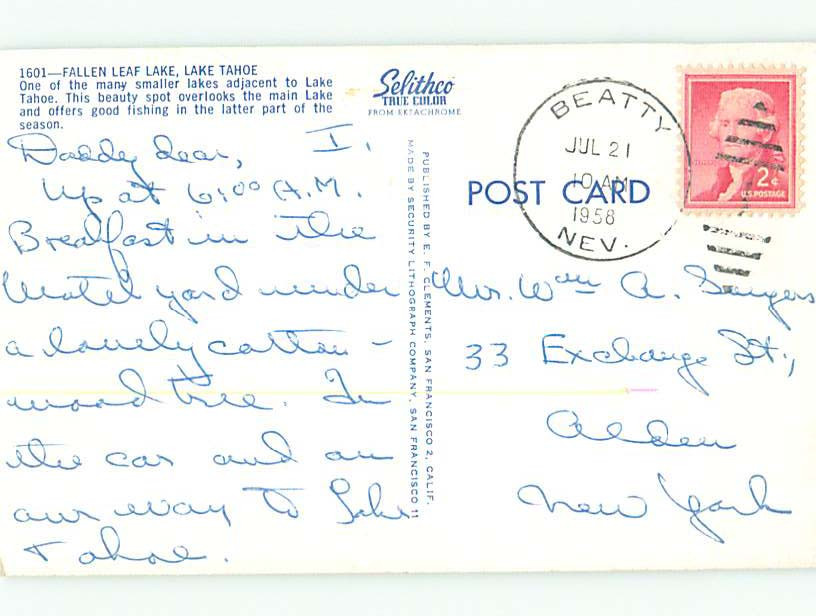 1601—FALLEN LEAF LAKE, LAKE TAHOE
One of the many smaller lakes adjacent to Lake
Tahoe. This beauty spot overlooks the main Lake
and offers good fishing in the latter part of the
season.
Selithco
TRUE COLOR
FROM EKTACHROME
Daddy dear, I.
Up at 6:00 A.M.
Breakfast in the
Motel yard under
a lovely cotton-
wood tree. In
the car and on
our way to Lake
Tahoe.
PUBLISHED BY E. F. CLEMENTS, SAN FRANCISCO 2, CALIF.
MADE BY SECURITY LITHOGRAPH COMPANY, SAN FRANCISCO 11
POST CARD
BEATTY
JUL 21
10 AM
1958
NEV.
2¢
U.S. POSTAGE
Mr. Wm A.
33 Exchange St.,
Alden
New York